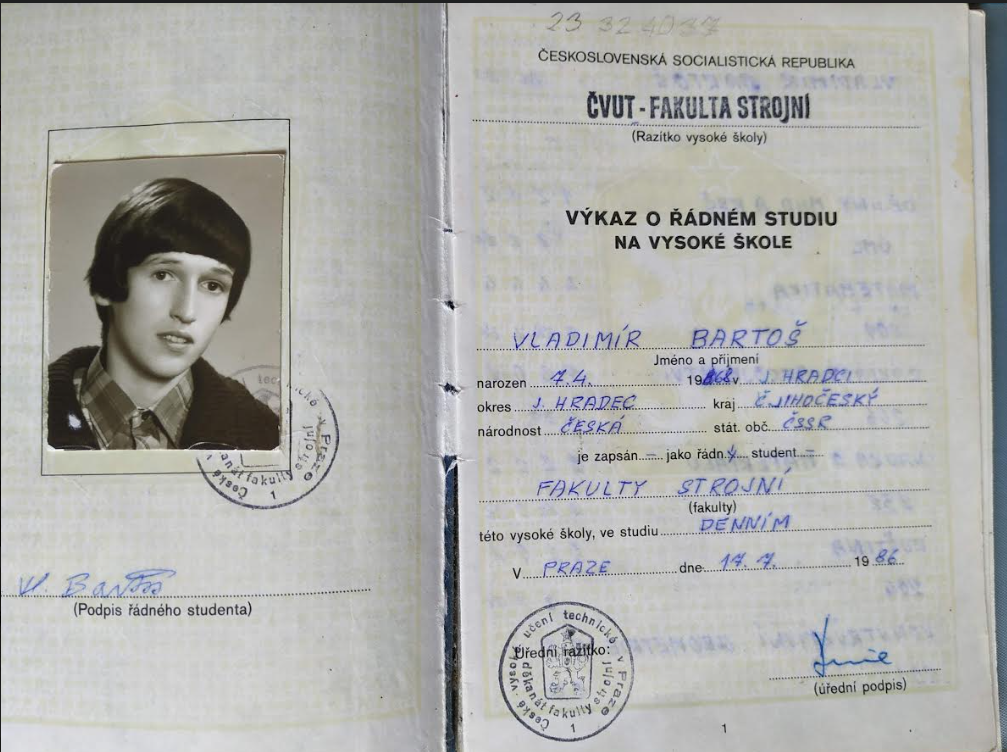 23 324037
ČESKOSLOVENSKÁ SOCIALISTICKÁ REPUBLIKA
ČVUT - FAKULTA STROJNÍ
(Razítko vysoké školy)
VÝKAZ O ŘÁDNÉM STUDIU
NA VYSOKÉ ŠKOLE
VLADIMÍR BARTOŠ
Jméno a přijmení
narozen 7.4. 1968 v J. HRADCI
okres J. HRADEC kraj JIHOČESKÝ
národnost ČESKÁ stát. obč. ČSSR
je zapsán – jako řádn.ý student
FAKULTY STROJNÍ
(fakulty)
této vysoké školy, ve studiu DENNÍM
V PRAZE dne 17. 7. 1986
Úřední razítko:
České vysoké učení technické v Praze
děkanát fakulty strojní
1
(úřední podpis)
1
Vl. Bartoš
(Podpis řádného studenta)